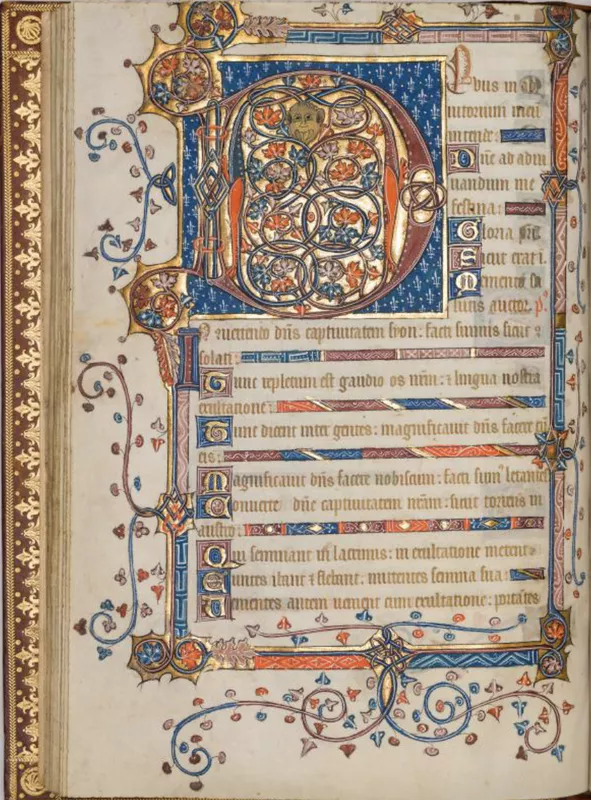 Deus in ad
iutorium meu
intende:
Dne ad adiu
uandum me
festina:
Gloria pri.
Sicut erat i.
Memento sa
lutis auctor. p̄s
In conuertendo dns captiuitatem syon: facti sumus sicut
solati:
Tunc repletum est gaudio os nrm: ⁊ lingua nostra
exultatione:
Tunc dicent inter gentes: magnificauit dns facere cū
eis:
Magnificauit dns facere nobiscum: facti sumꝰ letantes
Conuerte dne captiuitatem nram: sicut torrens in
austro:
Qui seminant in lacrimis: in exultatione metent
Euntes ibant ⁊ flebant: mittentes semina sua:
Uenientes autem uenient cum exultatione: portātes